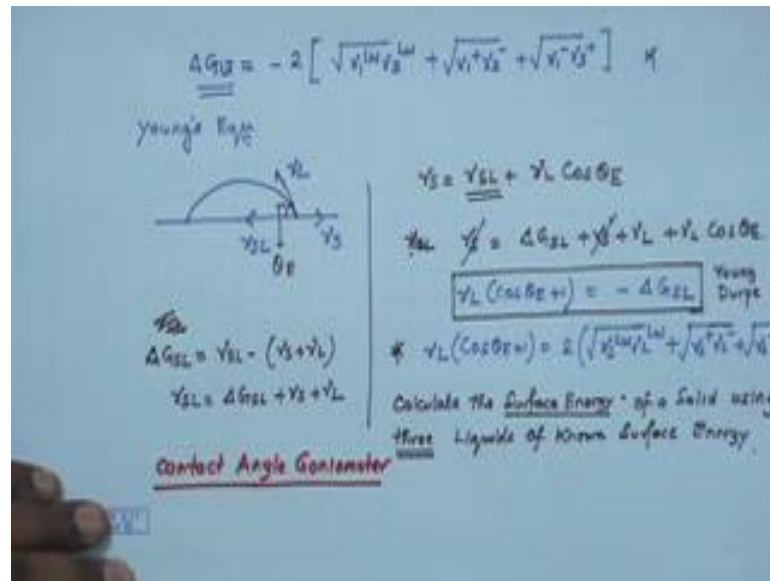 ΔG₁₂ = - 2 [ √γ₁ᴸᵂ γ₂ᴸᵂ + √γ₁⁺γ₂⁻ + √γ₁⁻γ₂⁺ ]
Young's Eqn
γL
γSL
γS
θE
ΔGSL = γSL - (γS + γL)
γSL = ΔGSL + γS + γL
γS = γSL + γL CosθE
γS = ΔGSL + γS + γL + γL CosθE
γL (CosθE + 1) = - ΔGSL
Young
Dupre
* γL (CosθE+1) = 2 (√γSᴸᵂγLᴸᵂ + √γS⁺γL⁻ + √γS
Calculate the Surface Energy of a Solid using
three Liquids of Known Surface Energy.
Contact Angle Goniometer